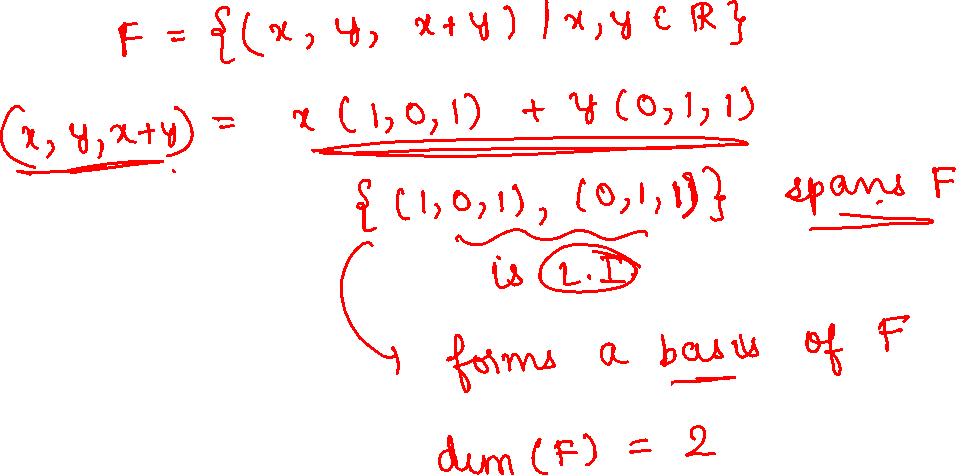 F = {(x, y, x+y) / x, y ∈ ℝ}
(x, y, x+y) = x (1,0,1) + y (0,1,1)
{(1,0,1), (0,1,1)} spans F
is L.I
forms a basis of F
dim (F) = 2